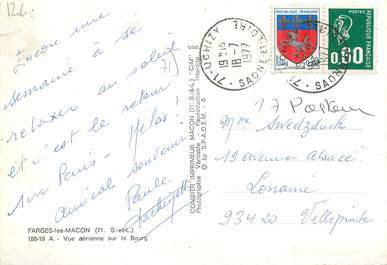 Encore une
semaine à se
relaxer au soleil
et c'est le retour
sur Paris - Helas!
amical souvenir
Paule
FARGES-les-MACON (71. S.-et-L.)
188-19 A - Vue aérienne sur le Bourg
COMBIER IMPRIMEUR MACON (71. S.-&-L.) "CIM"
Photographie Véritable - Reproduction Interdite
© by S.P.A.D.E.M.
71-UCHIZY
SAONE-ET-LOIRE
19H15
18-7
1977
REPUBLIQUE FRANÇAISE
0,60
Mme Swedzduck
19 avenue Alsace
Lorraine
93420 Villepinte